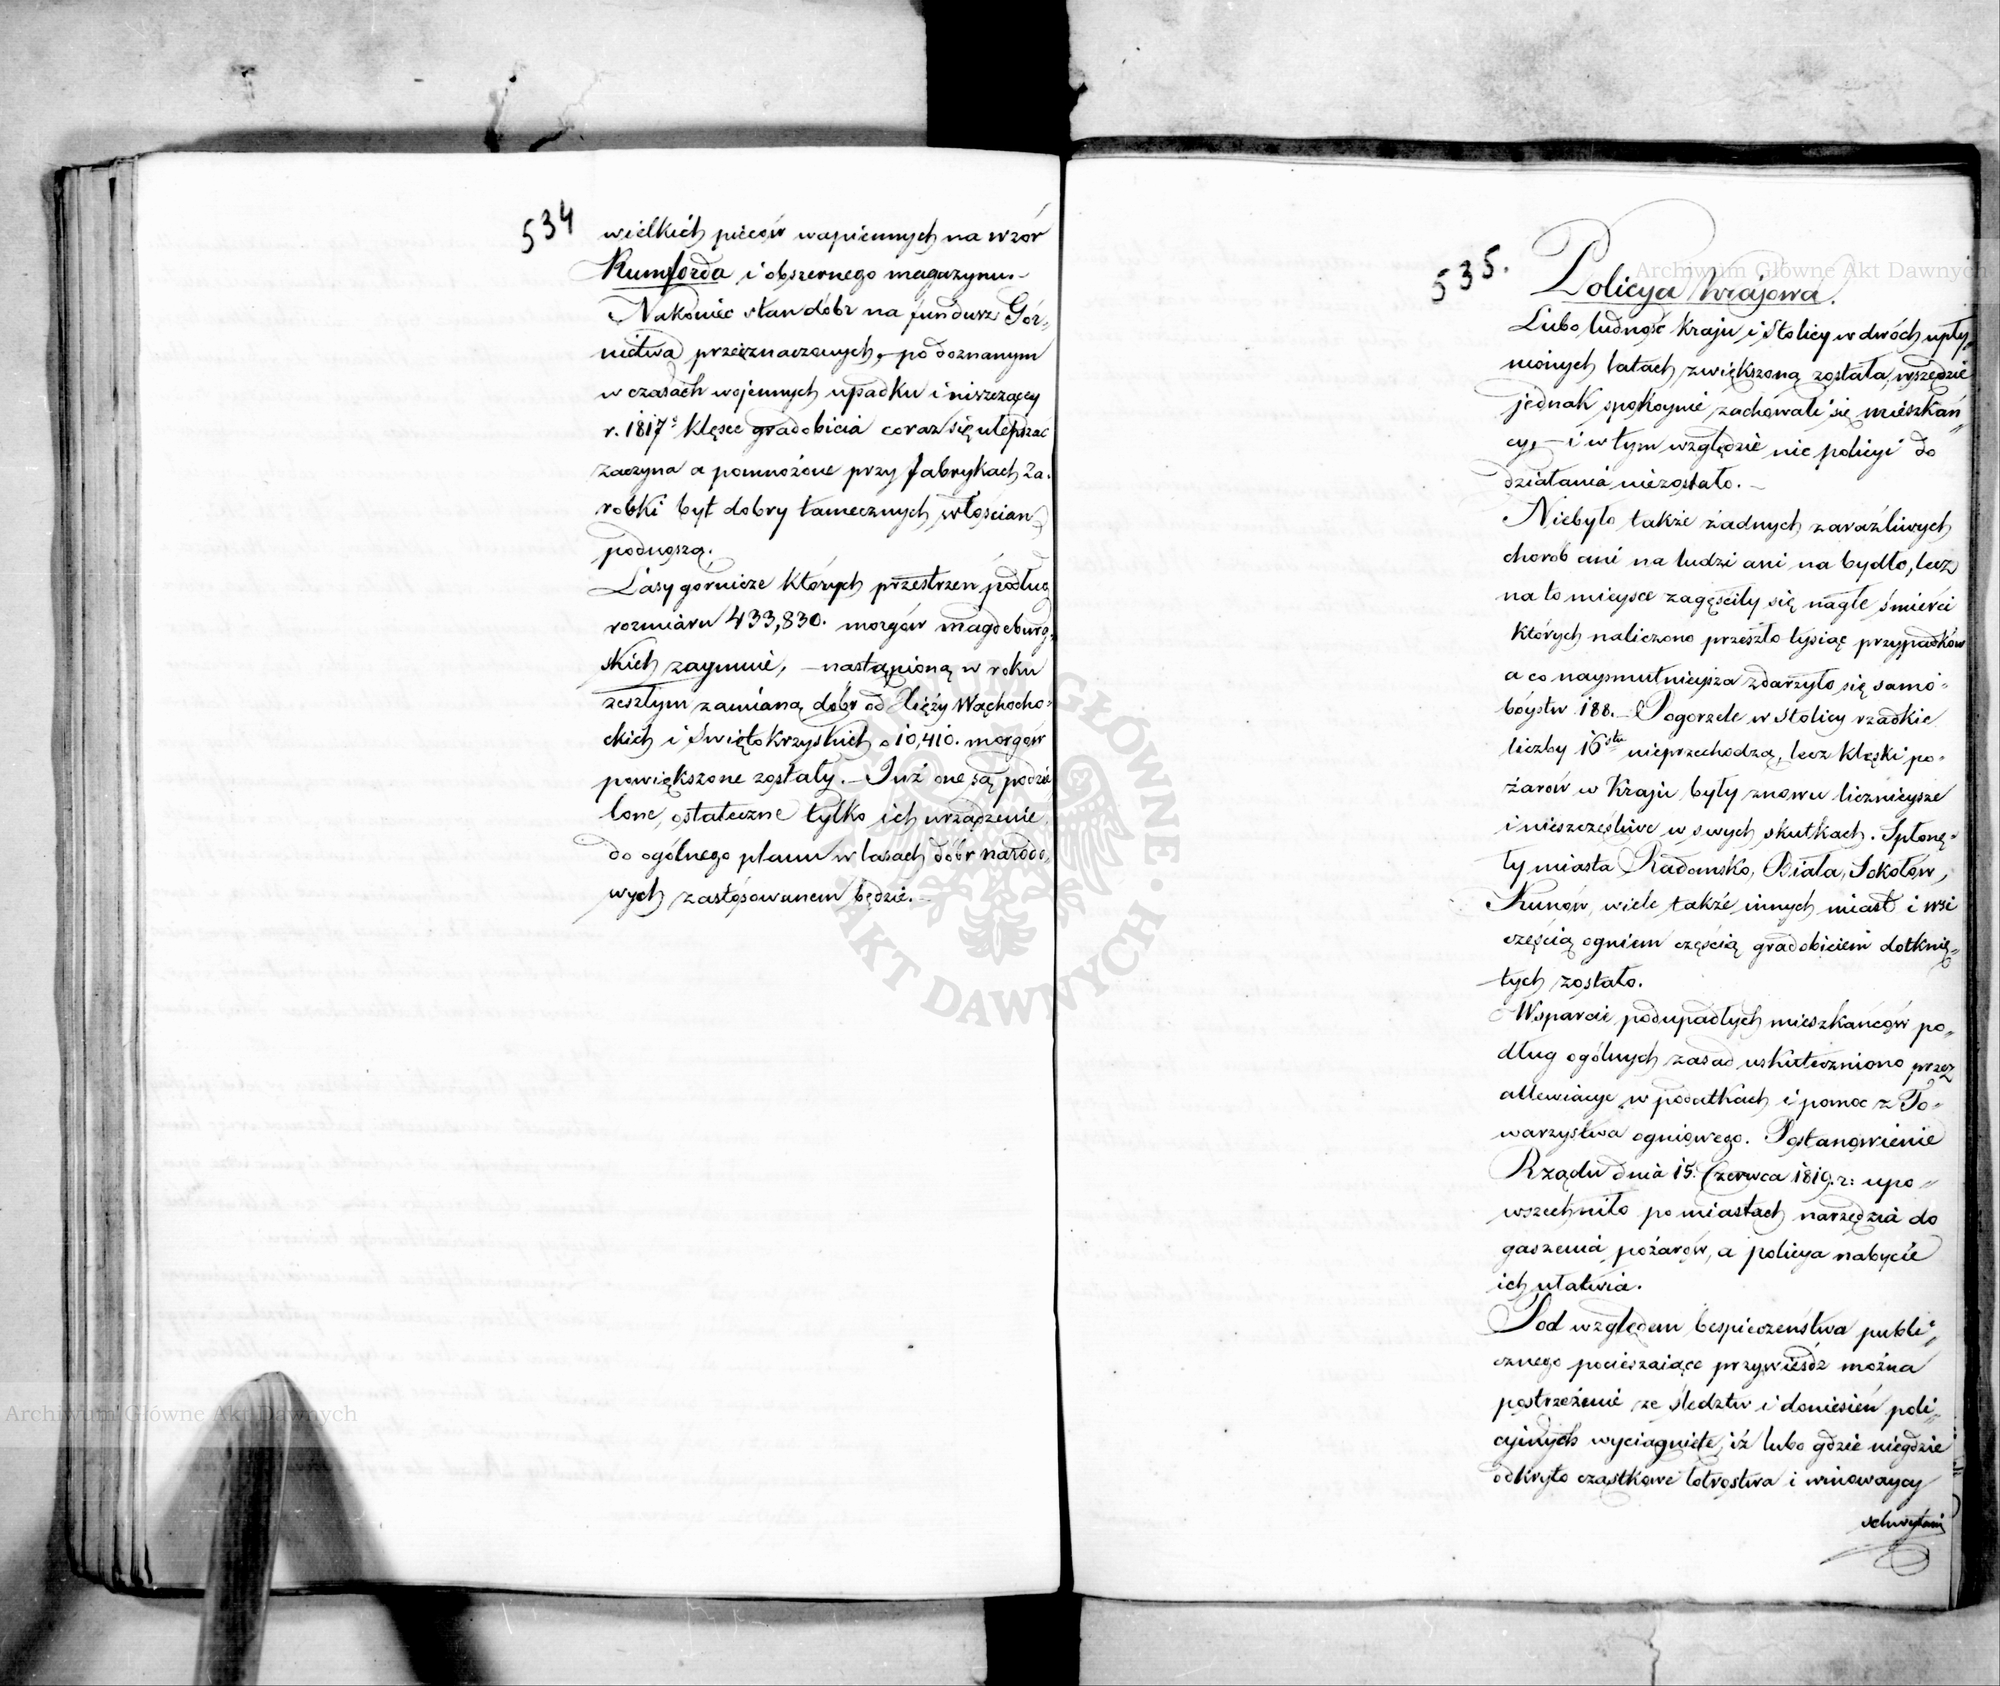 534
wielkich pieców wapiennych na wzór
Rumforda i obszernego magazynu.-
Nakoniec stan dóbr na fundusz Gór-
nictwa przeznaczonych, po doznanym
w czasach wojennych upadku i niszczącey
r. 1817 klęsce gradobicia coraz się ulepszać
zaczyna a pomnożone przy fabrykach za-
robki byt dobry tamecznych włościan
podnoszą.
Lasy gornicze których przestrzen podług
rozmiaru 433,830. morgów magdeburg-
skich zaymuie, - nastąpioną w roku
zeszłym zamianą dóbr od Xięży Wąchoc-
ckich i Świętokrzyskich o 10,410. morgów
powiększone zostały. - Już one są podzie
lone, ostateczne tylko ich urządzenie
do ogólnego planu w lasach dóbr narodo-
wych zastósowanem będzie. -
535.
Policya Krajowa.
Lubo ludność kraju i Stolicy w dwóch upły-
nionych latach zwiększoną została, wszędzie
jednak spokoynie zachowali się mieszkań
cy, - i w tym względzie nic policyi do
działania niezostało. -
Niebyło także żadnych zaraźliwych
chorob ani na ludzi ani na bydło, lecz
na to mieysce zagęściły się nagłe śmierci
których naliczono przeszło tysiąc przypadków
a co naysmutnieysza zdarzyło się samo-
bóystw 188. - Pogorzele w stolicy rzadkie
liczby 16stu nieprzechodzą, lecz klęski po-
żarów w Kraju były znowu licznieysze
i nieszczęśliwe w swych skutkach. Spłonę-
ły miasta Radomsko, Biała, Sokołów,
Kunów, wiele także innych miast i wsi
częścią ogniem częścią gradobiciem dotknię-
tych zostało.
Wsparcie podupadłych mieszkańców po-
dług ogólnych zasad uskuteczniono przez
allewiacye w podatkach i pomoc z To-
warzystwa ogniowego. Postanowienie
Rządu dnia 15. Czerwca 1819. r: upo-
wszechniło po miastach narzędzia do
gaszenia pożarów, a policya nabycie
ich ułatwia.
Pod względem bespieczeństwa publi-
cznego pocieszaiące przywieśdź można
postrzeżenie ze śledztw i doniesień poli-
cyinych wyciągniete, iż lubo gdzie niegdzie
odkryto cząstkowe łotrostwa i winowaycy
schwytani
Archiwum Główne Akt Dawnych
Archiwum Główne Akt Dawnych
ARCHIWUM GŁÓWNE
AKT DAWNYCH